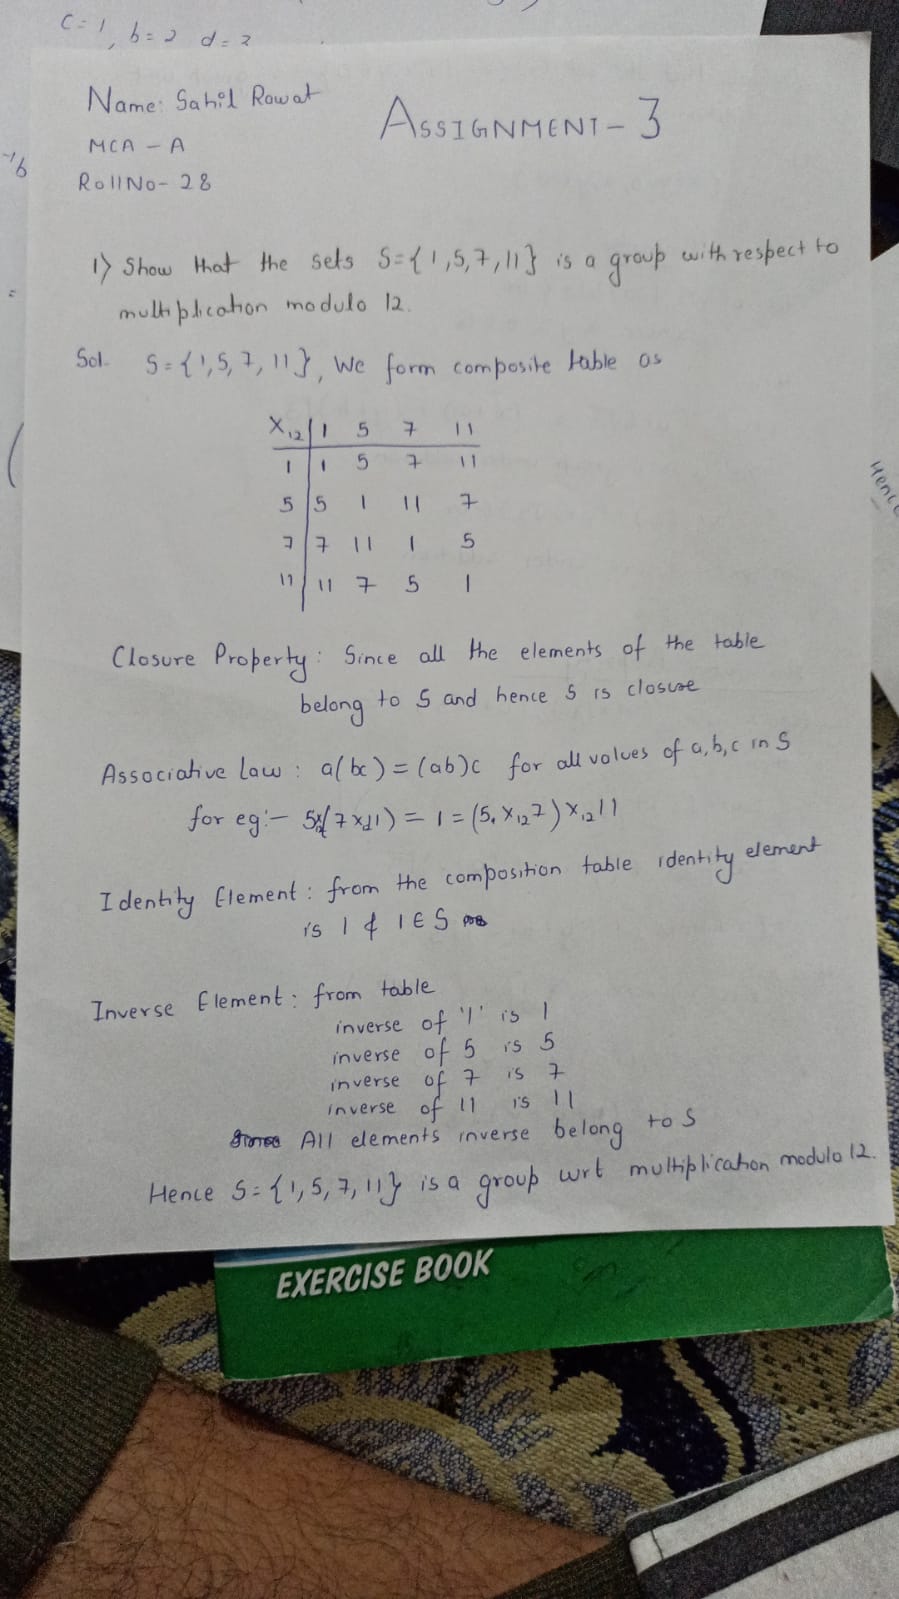 C=1, b=2 d=2
Name: Sahil Rawat
ASSIGNMENT-3
MCA - A
Roll No- 28
1) Show that the sets S={1,5,7,11} is a group with respect to
multiplication modulo 12.
Sol. S={1,5,7,11}, We form composite table as
X₁₂ | 1 5 7 11
1 | 1 5 7 11
5 | 5 1 11 7
7 | 7 11 1 5
11 | 11 7 5 1
Closure Property: Since all the elements of the table
belong to S and hence S is closure
Associative Law : a(bc) = (ab)c for all values of a,b,c in S
for eg:- 5x₁₂(7x₁₂11) = 1 = (5, X₁₂7)X₁₂11
Identity Element : from the composition table identity element
is 1 & 1 ∈ S
Inverse Element : from table
inverse of '1' is 1
inverse of 5 is 5
inverse of 7 is 7
inverse of 11 is 11
All elements inverse belong to S
Hence S={1,5,7,11} is a group wrt multiplication modulo 12.
EXERCISE BOOK